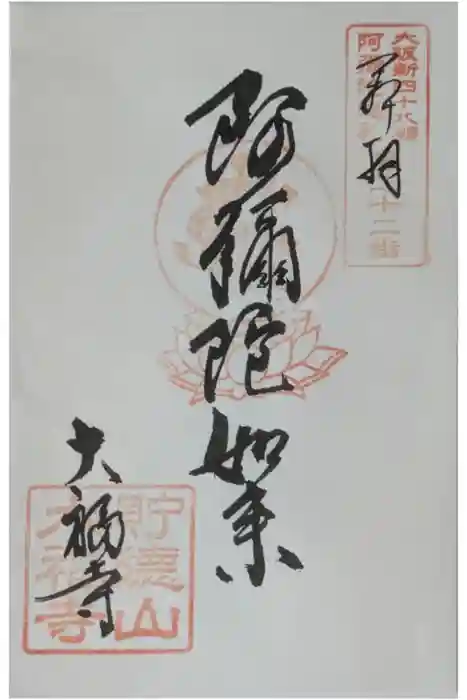 奉拝
大阪新四十八願
阿弥陀
十二番
阿彌陀如来
大福寺
貯徳山
大福寺